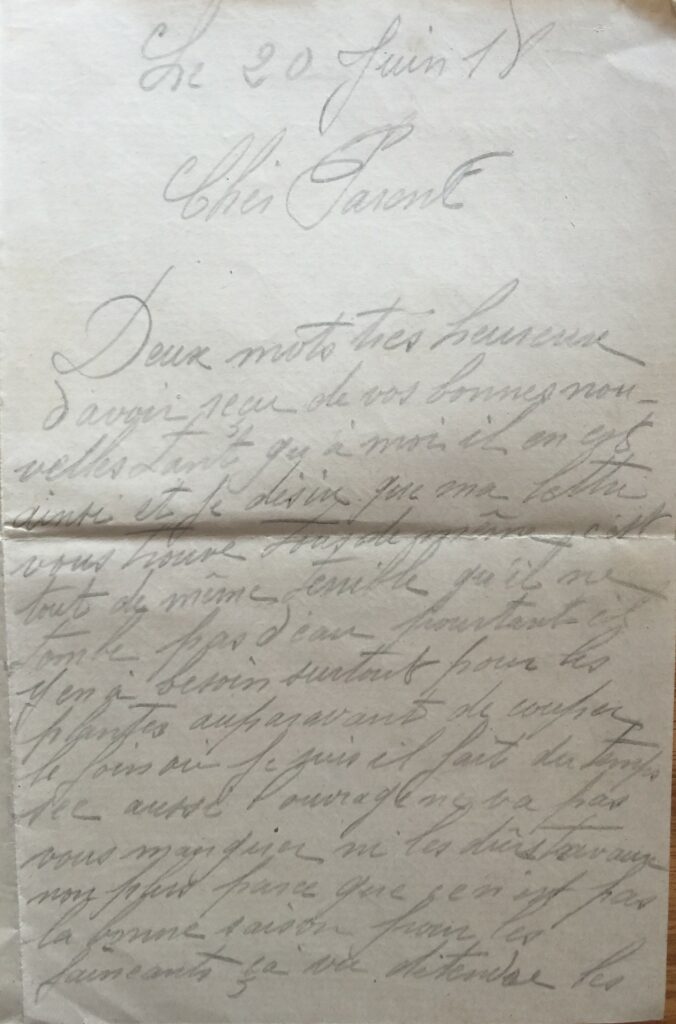 Le 20 Juin 18
Cher Parent
Deux mots très heureux
d'avoir reçu de vos bonnes nou-
velles tant qu'à moi il en est
ainsi et je désire que ma lettre
vous trouve tous de même, c'est
tout de même terrible qu'il ne
tombe pas d'eau pourtant il
y en à besoin surtout pour les
plantes auparavant de couper
le foin où je suis il fait du temps
sec aussi l'ouvrage ne va pas
vous manquer ni les dûrs travaux
non plus parce que ce n'est pas
la bonne saison pour les
fainéants ça va détendre les